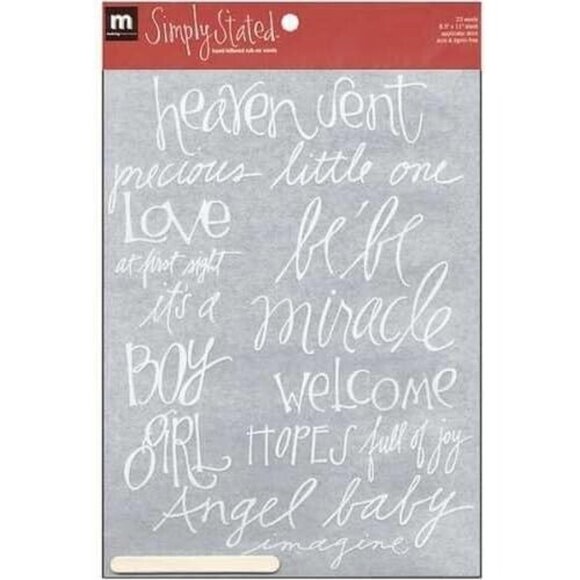 m
making memories
Simply Stated
hand lettered rub-on words
23 words
8.5" x 11" sheet
applicator stick
acid & lignin free
heaven sent
precious little one
Love
at first sight
bé'bé
it's a
miracle
BOY
WELCOME
GIRL
HOPES full of joy
Angel baby
imagine